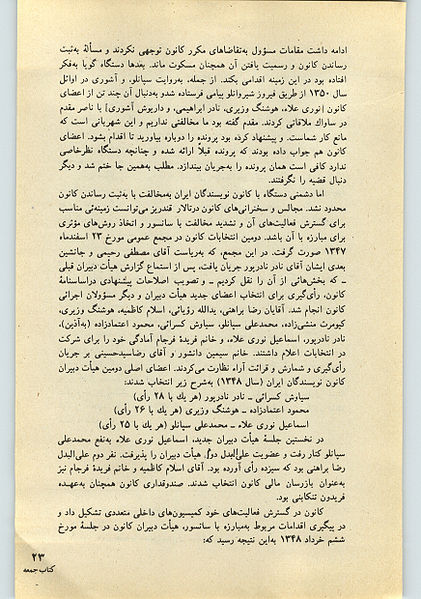 ادامه داشت مقامات مسؤول به‌تقاضاهای مکرر کانون توجهی نکردند و مسألهٔ به‌ثبت
رساندن کانون و رسمیت یافتن آن همچنان مسکوت ماند. بعدها دستگاه گویا به‌فکر
افتاده بود در این زمینه اقدامی بکند. از جمله، به‌روایت سپانلو، و آشوری در اوائل
سال ۱۳۵۰ از طریق فیروز شیروانلو پیامی فرستاده شد و به‌دنبال آن چند تن از اعضای
کانون [نوری علاء، هوشنگ وزیری، نادر ابراهیمی، و داریوش آشوری] با ناصر مقدم
در ساواك ملاقاتی کردند. مقدم گفته بود ما مخالفتی نداریم و این شهربانی است که
مانع کار شماست. و پیشنهاد کرده بود پرونده را دوباره بیاورید تا اقدام بشود. اعضای
کانون هم جواب داده بودند که پرونده قبلاً ارائه شده و چنانچه دستگاه نظرخاصی
ندارد کافی است همان پرونده را به‌جریان بیندازد. مطلب به‌همین جا ختم شد و دیگر
دنبال قضیه را نگرفتند.
اما دشمنی دستگاه با کانون نویسندگان ایران به‌مخالفت با به‌ثبت رساندن کانون
محدود نشد. مجالس و سخنرانی‌های کانون درتالار قندریز می‌توانست زمینه‌ئی مناسب
برای گسترش فعالیت‌های آن و تشدید مخالفت با سانسور و اتخاذ روش‌های مؤثری
برای مبارزه با آن باشد. دومین انتخابات کانون در مجمع عمومی مورخ ۲۳ اسفندماه
۱۳۴۷ صورت گرفت. در این مجمع، که به‌ریاست آقای مصطفی رحیمی و جانشین
بعدی ایشان آقای نادر نادرپور جریان یافت، پس از استماع گزارش هیأت دبیران قبلی
ـ که بخش‌هائی از آن را نقل کردیم ـ و تصویب اصلاحات پیشنهادی دراساسنامهٔ
کانون، رأی‌گیری برای انتخاب اعضای جدید هیأت دبیران و دیگر مسؤولان اجرائی
کانون انجام شد. آقایان رضا براهنی، یدالله رؤیائی، اسلام کاظمیه، هوشنگ وزیری،
کیومرث منشی‌زاده، محمدعلی سپانلو، سیاوش کسرائی، محمود اعتمادزاده (به‌آذین)،
نادر نادرپور، اسماعیل نوری علاء، و خانم فریدهٔ فرجام آمادگی خود را برای شرکت
در انتخابات اعلام داشتند. خانم سیمین دانشور و آقای رضاسیدحسینی بر جریان
رأی‌گیری و شمارش و قرائت آراء نظارت می‌کردند. اعضای اصلی دومین هیأت دبیران
کانون نویسندگان ایران (سال ۱۳۴۸) به‌شرح زیر انتخاب شدند:
سیاوش کسرائی ـ نادر نادرپور (هر یك با ۲۸ رأی)
محمود اعتمادزاده ـ هوشنگ وزیری (هر یك با ۲۶ رأی)
اسماعیل نوری علاء ـ محمدعلی سپانلو (هر یك با ۲۵ رأی)
در نخستین جلسهٔ هیأت دبیران جدید، اسماعیل نوری علاء به‌نفع محمدعلی
سپانلو کنار رفت و عضویت علی‌البدل دو هیأت دبیران را پذیرفت. نفر دوم علی‌البدل
رضا براهنی بود که سیزده رأی آورده بود. آقای اسلام کاظمیه و خانم فریدهٔ فرجام نیز
به‌عنوان بازرسان مالی کانون انتخاب شدند. صندوقداری کانون همچنان به‌عهدهٔ
فریدون تنکابنی بود.
کانون در گسترش فعالیت‌های خود کمیسیون‌های داخلی متعددی تشکیل داد و
در پیگیری اقدامات مربوط به‌مبارزه با سانسور، هیأت دبیران کانون در جلسهٔ مورخ
ششم خرداد ۱۳۴۸ به‌این نتیجه رسید که:
۲۳
کتاب جمعه